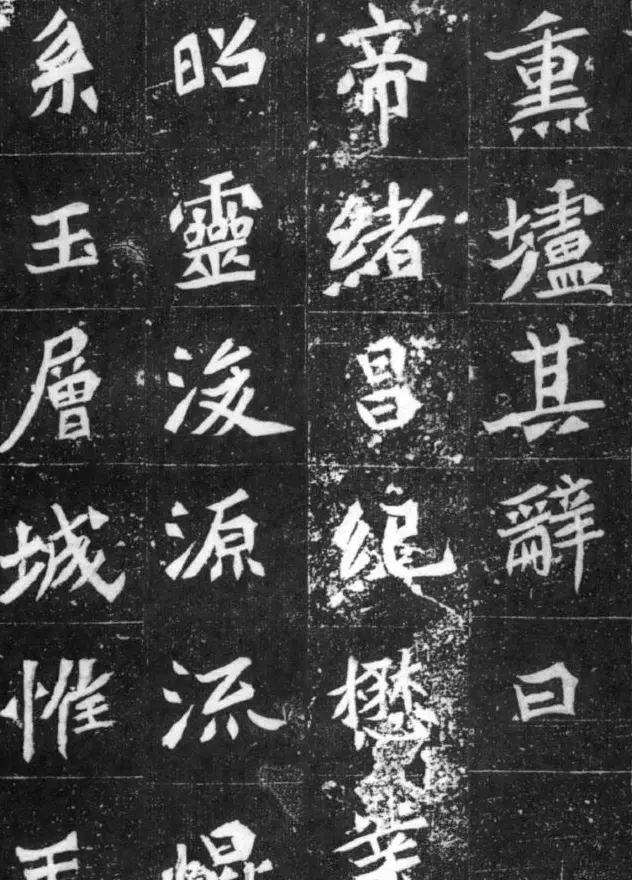 熏壚其辭曰
帝緒昌紀懋業
昭靈浚源流
系玉層城惟王